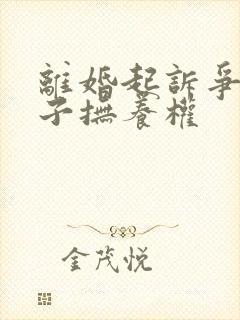 離婚起訴爭
子撫養權
金茂悦